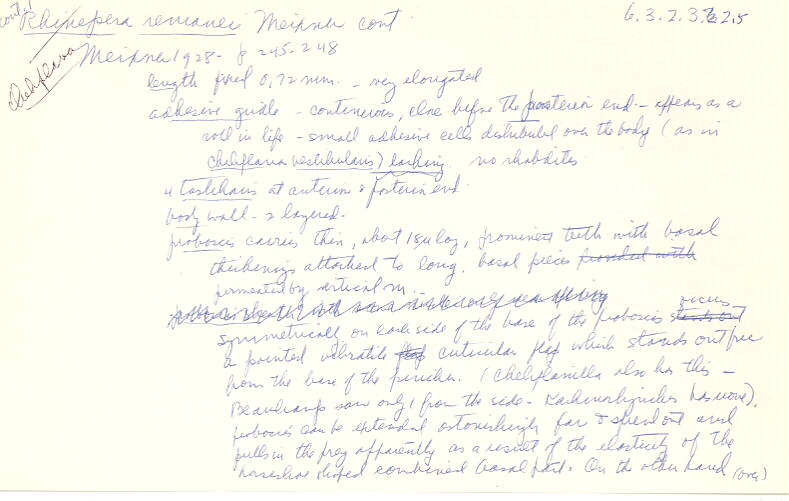 cont.
Rhinepera remanei Meixner cont
6.3.2.3.7.2.5
Cheliplana
Meixner 1928 - p 245-248
length fixed 0,72 mm. - very elongated
adhesive girdle - continuous, close before the posterior end - appears as a
roll in life - small adhesive cells distributed over the body (as in
Cheliplana vestibularis) lacking. no rhabdites
4 tasthairs at anterior & posterior end.
body wall - 2 layered.
proboscis carries thin, about 18µ long, prominent teeth with basal
thickenings attached to long. basal pieces provided with
permeated by vertical m.
symmetrically on each side of the base of the proboscis occurs stands out
a pointed vibratile flap cuticular flap which stands out free
from the base of the pincher. (Cheliplanilla also has this -
Beauchamp saw only 1 from the side - Karkinorhynchus has none).
proboscis can be extended astonishingly far & spread out and
pulls in the prey apparently as a result of the elasticity of the
horseshoe shaped combined basal part. On the other hand (over)